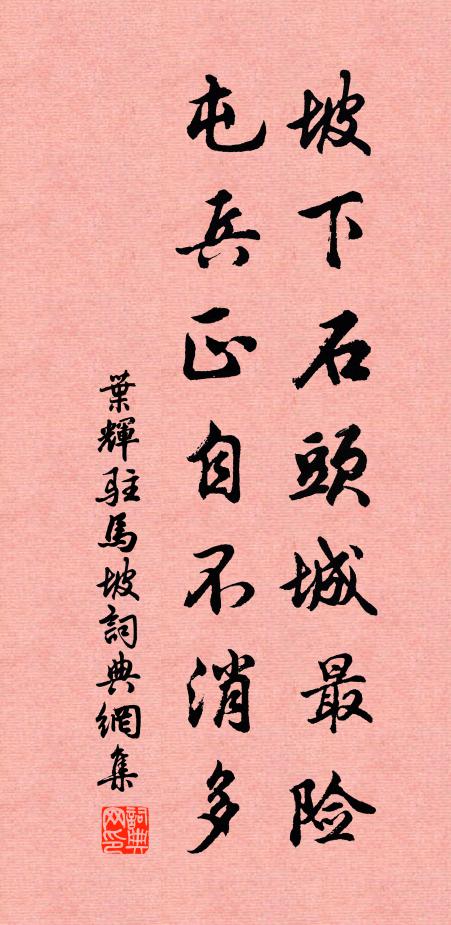 坡下石頭城最险
屯兵正自不消多
葉輝駐馬坡詞典網集
詞典網印